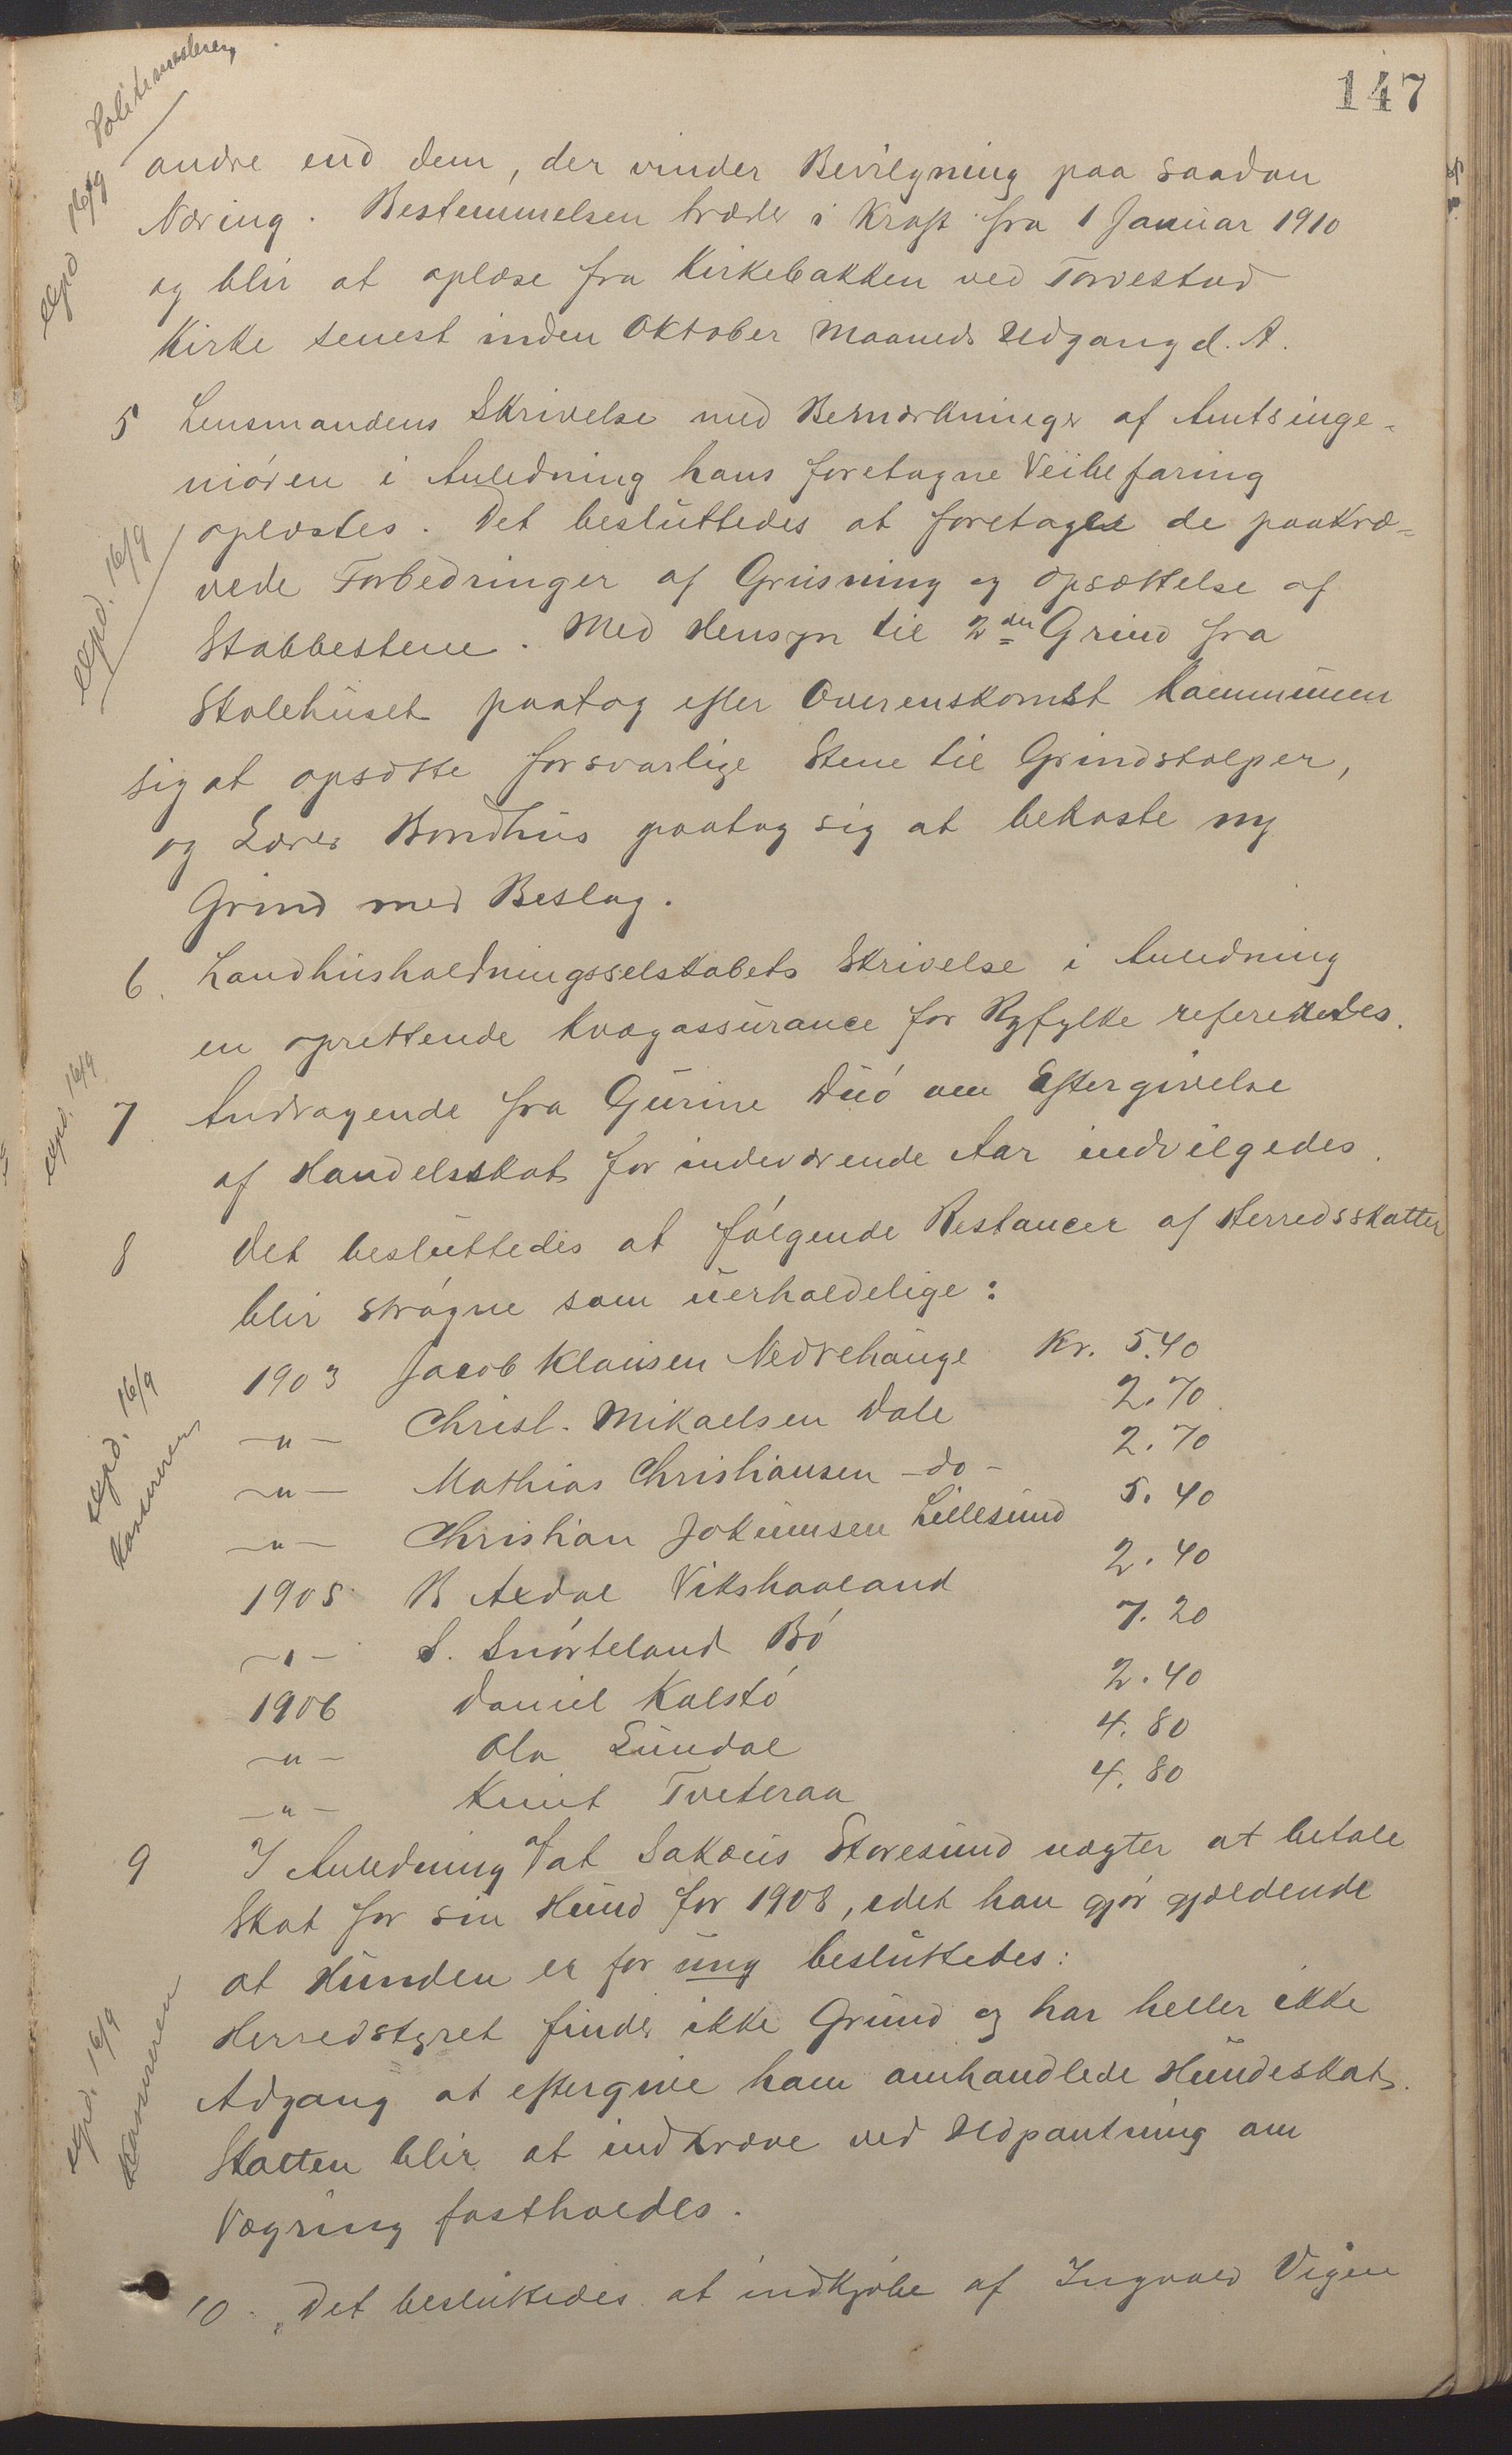 147
expd 16/9 Politimesteren
andre end dem, der vinder Bevilgning paa saadan
Næring. Bestemmelsen træder i Kraft fra 1 Januar 1910
og blir at oplæse fra Kirkebakken ved Torvestad
Kirke senest inden Oktober Maaneds Udgang d. A.
5 Lensmandens Skrivelse med Bemærkninger af Amtsinge-
niøren i Anledning hans foretagne Veibefaring
oplæstes. Det besluttedes at foretages de paakræ-
expd. 16/9
vede Forbedringer af Grusning og Opsættelse af
Stabbestene. Med Hensyn til 2den Grind fra
Skolehuset paatog efter Overenskomst Kommunen
sig at opsætte forsvarlige Stene til Grindstolper,
og Lærer Bondhus paatog sig at bekoste ny
Grind med Beslag.
6. Landhusholdningsselskabets Skrivelse i Anledning
en oprettende Kvægassurance for Ryfylke refereredes.
expd. 16/9
7 Andragende fra Gurine Duø om Eftergivelse
af Handelsskat for indeværende Aar indvilgedes.
8 Det besluttedes at følgende Restancer af Herredsskatter
blir strøgne som uerholdelige:
expd. 16/9
Kassereren
1903 Jacob Klausen Nedrehauge Kr. 5.40
-"- Christ. Mikaelsen Dale 2.70
-"- Mathias Christiansen -do- 2.70
-"- Christian Jokumsen Lillesund 5.40
1905 B Axdal Vikshaaland 2.40
-"- S. Snørteland Bø 7.20
1906 Daniel Kalstø 2.40
-"- Ola Sundal 4.80
-"- Knut Tveteraa 4.80
9 I Anledning af at Sakæus Storesund nægter at betale
Skat for sin Hund for 1908, idet han gjør gjældende
at Hunden er for ung besluttedes:
expd. 16/9
Kassereren
Herredstyret finder ikke Grund og har heller ikke
Adgang at eftergive ham omhandlede Hundeskat.
Skatten blir at indkræve ved Udpantning om
Vægring fastholdes.
10. Det besluttedes at indkjøbe af Ingvald Vigen